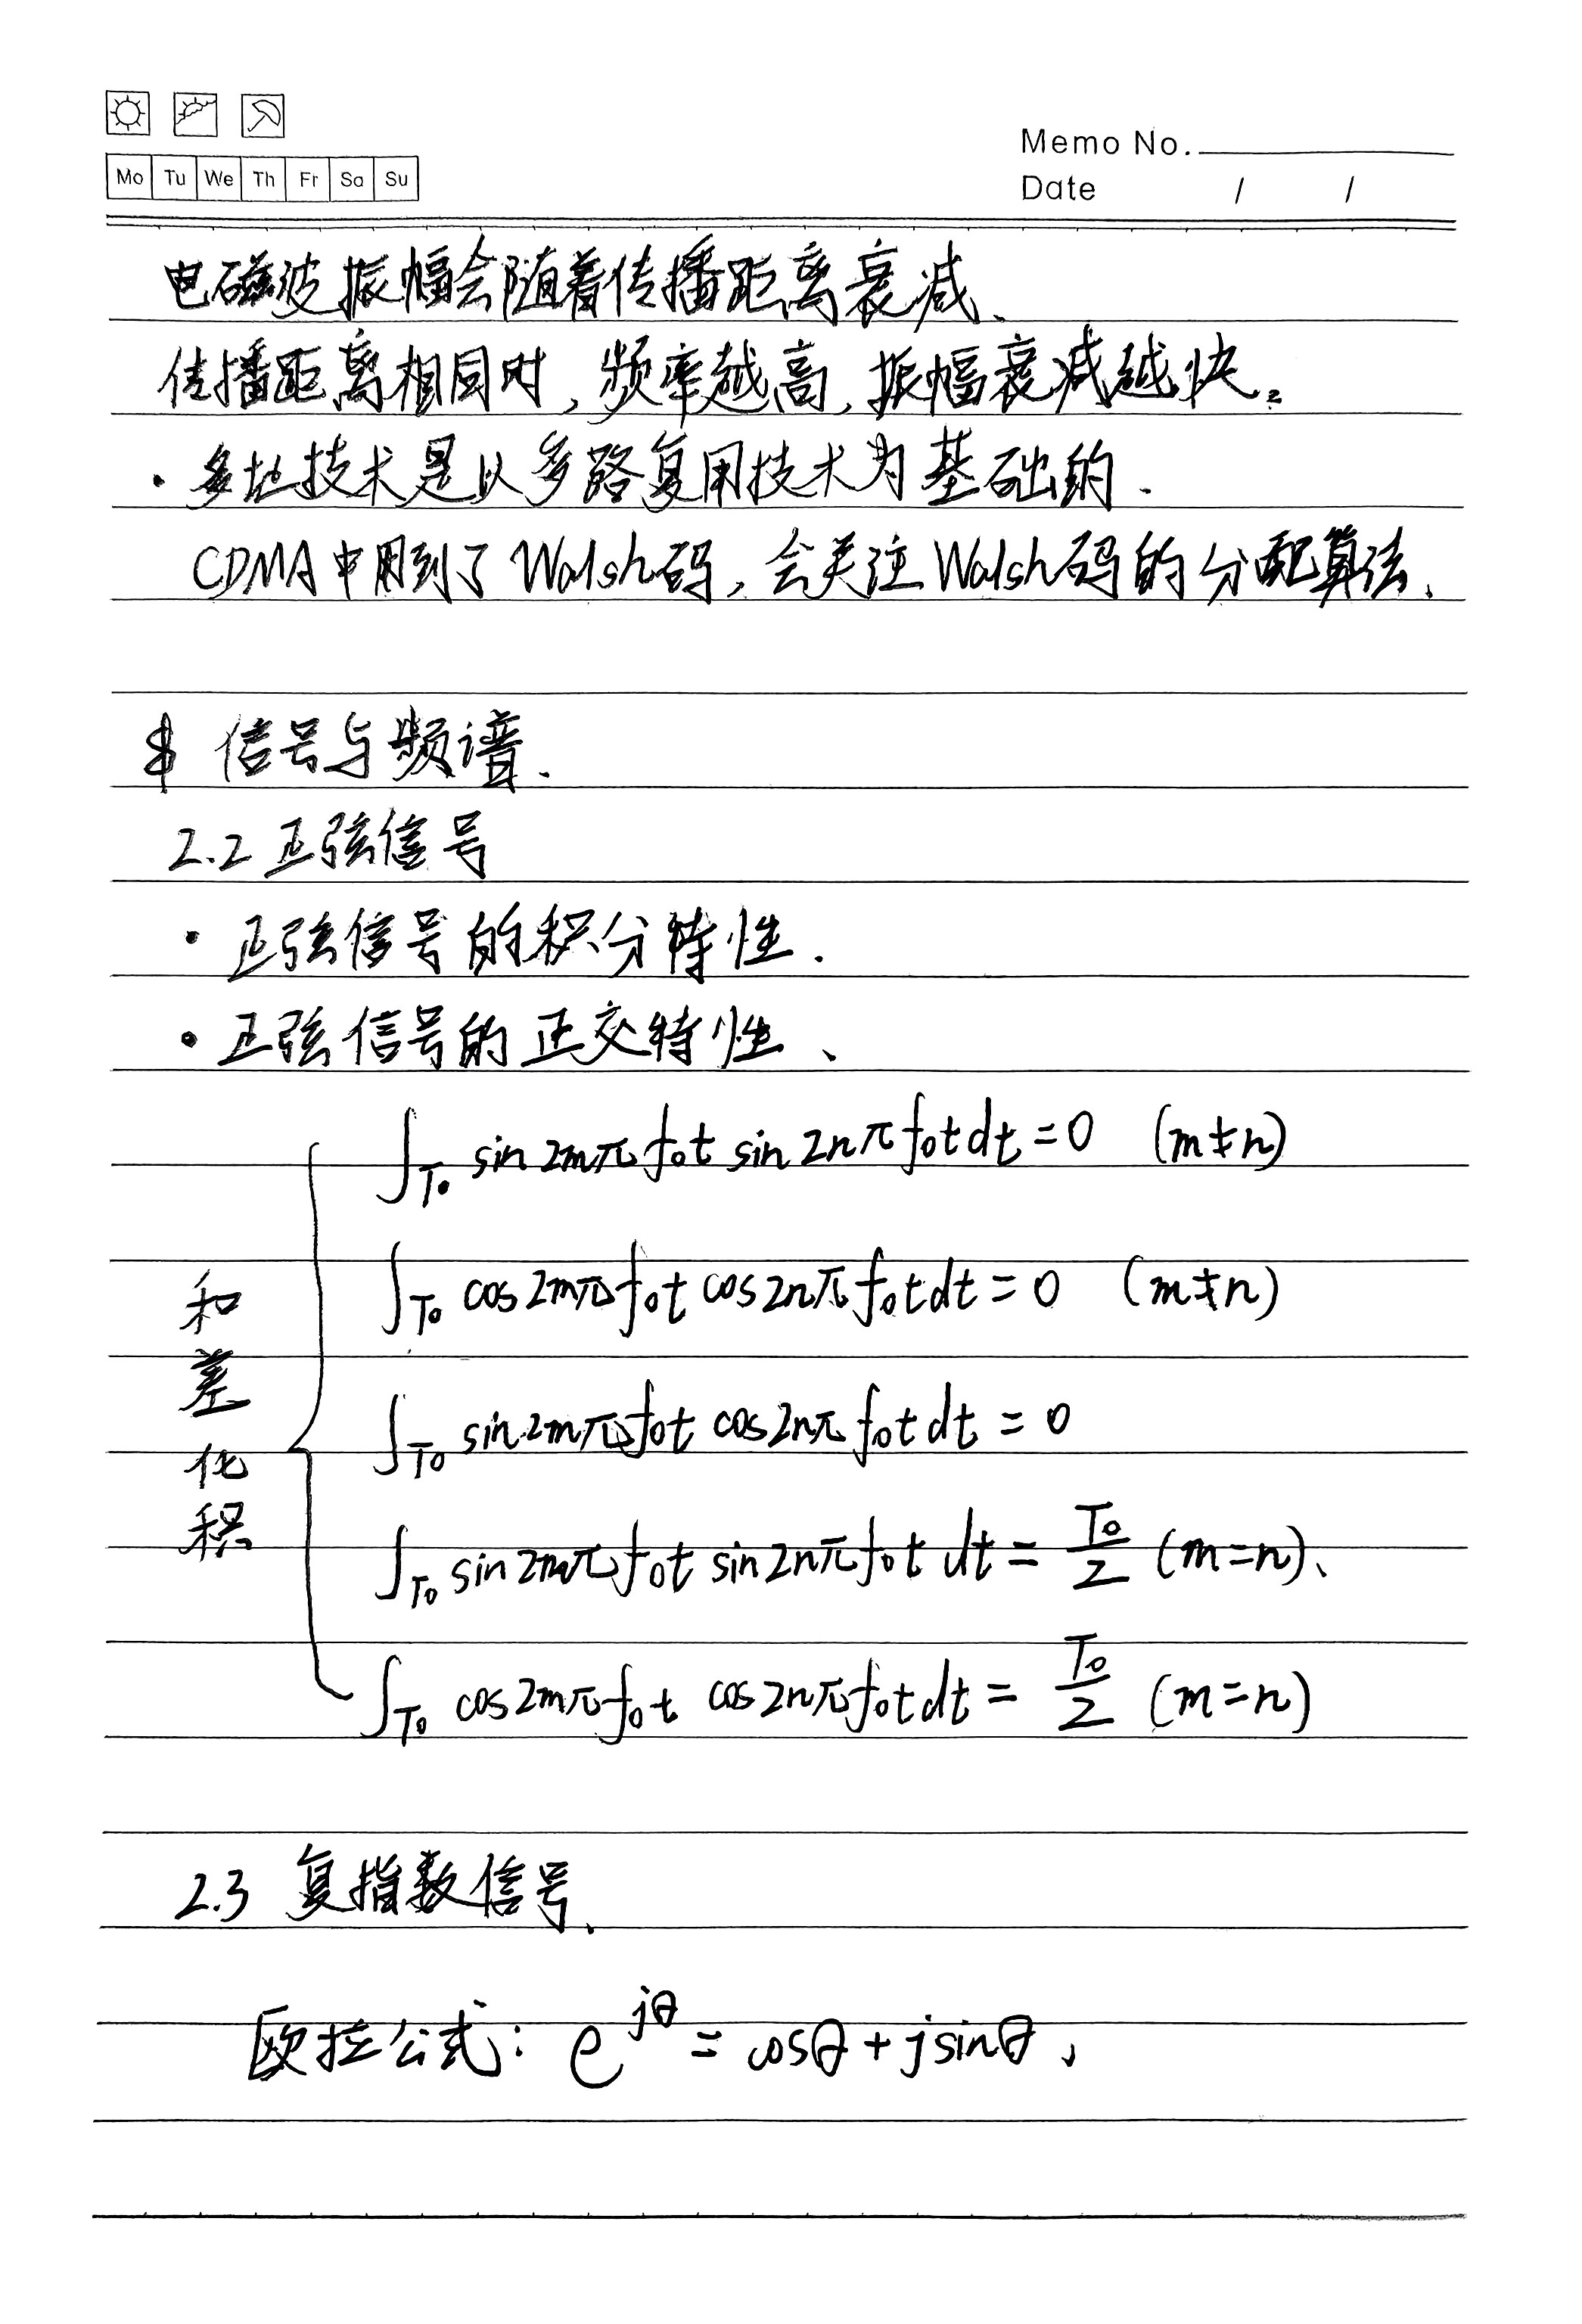 Mo Tu We Th Fr Sa Su
Memo No.
Date / /
电磁波振幅会随着传播距离衰减、
传播距离相同时，频率越高，振幅衰减越快。
· 多址技术是以多路复用技术为基础的.
CDMA中用到了Walsh码，会关注Walsh码的分配算法、
信号与频谱.
2.2 正弦信号
· 正弦信号的积分特性.
· 正弦信号的正交特性、
和差化积
∫_{T₀} sin2mπf₀t sin2nπf₀tdt=0 (m≠n)
∫_{T₀} cos2mπf₀t cos2nπf₀tdt=0 (m≠n)
∫_{T₀} sin2mπf₀t cos2nπf₀tdt=0
∫_{T₀} sin2mπf₀t sin2nπf₀t dt = T₀/2 (m=n)、
∫_{T₀} cos2mπf₀t cos2nπf₀tdt = T₀/2 (m=n)
2.3 复指数信号、
欧拉公式: e^{jθ} = cosθ + jsinθ、